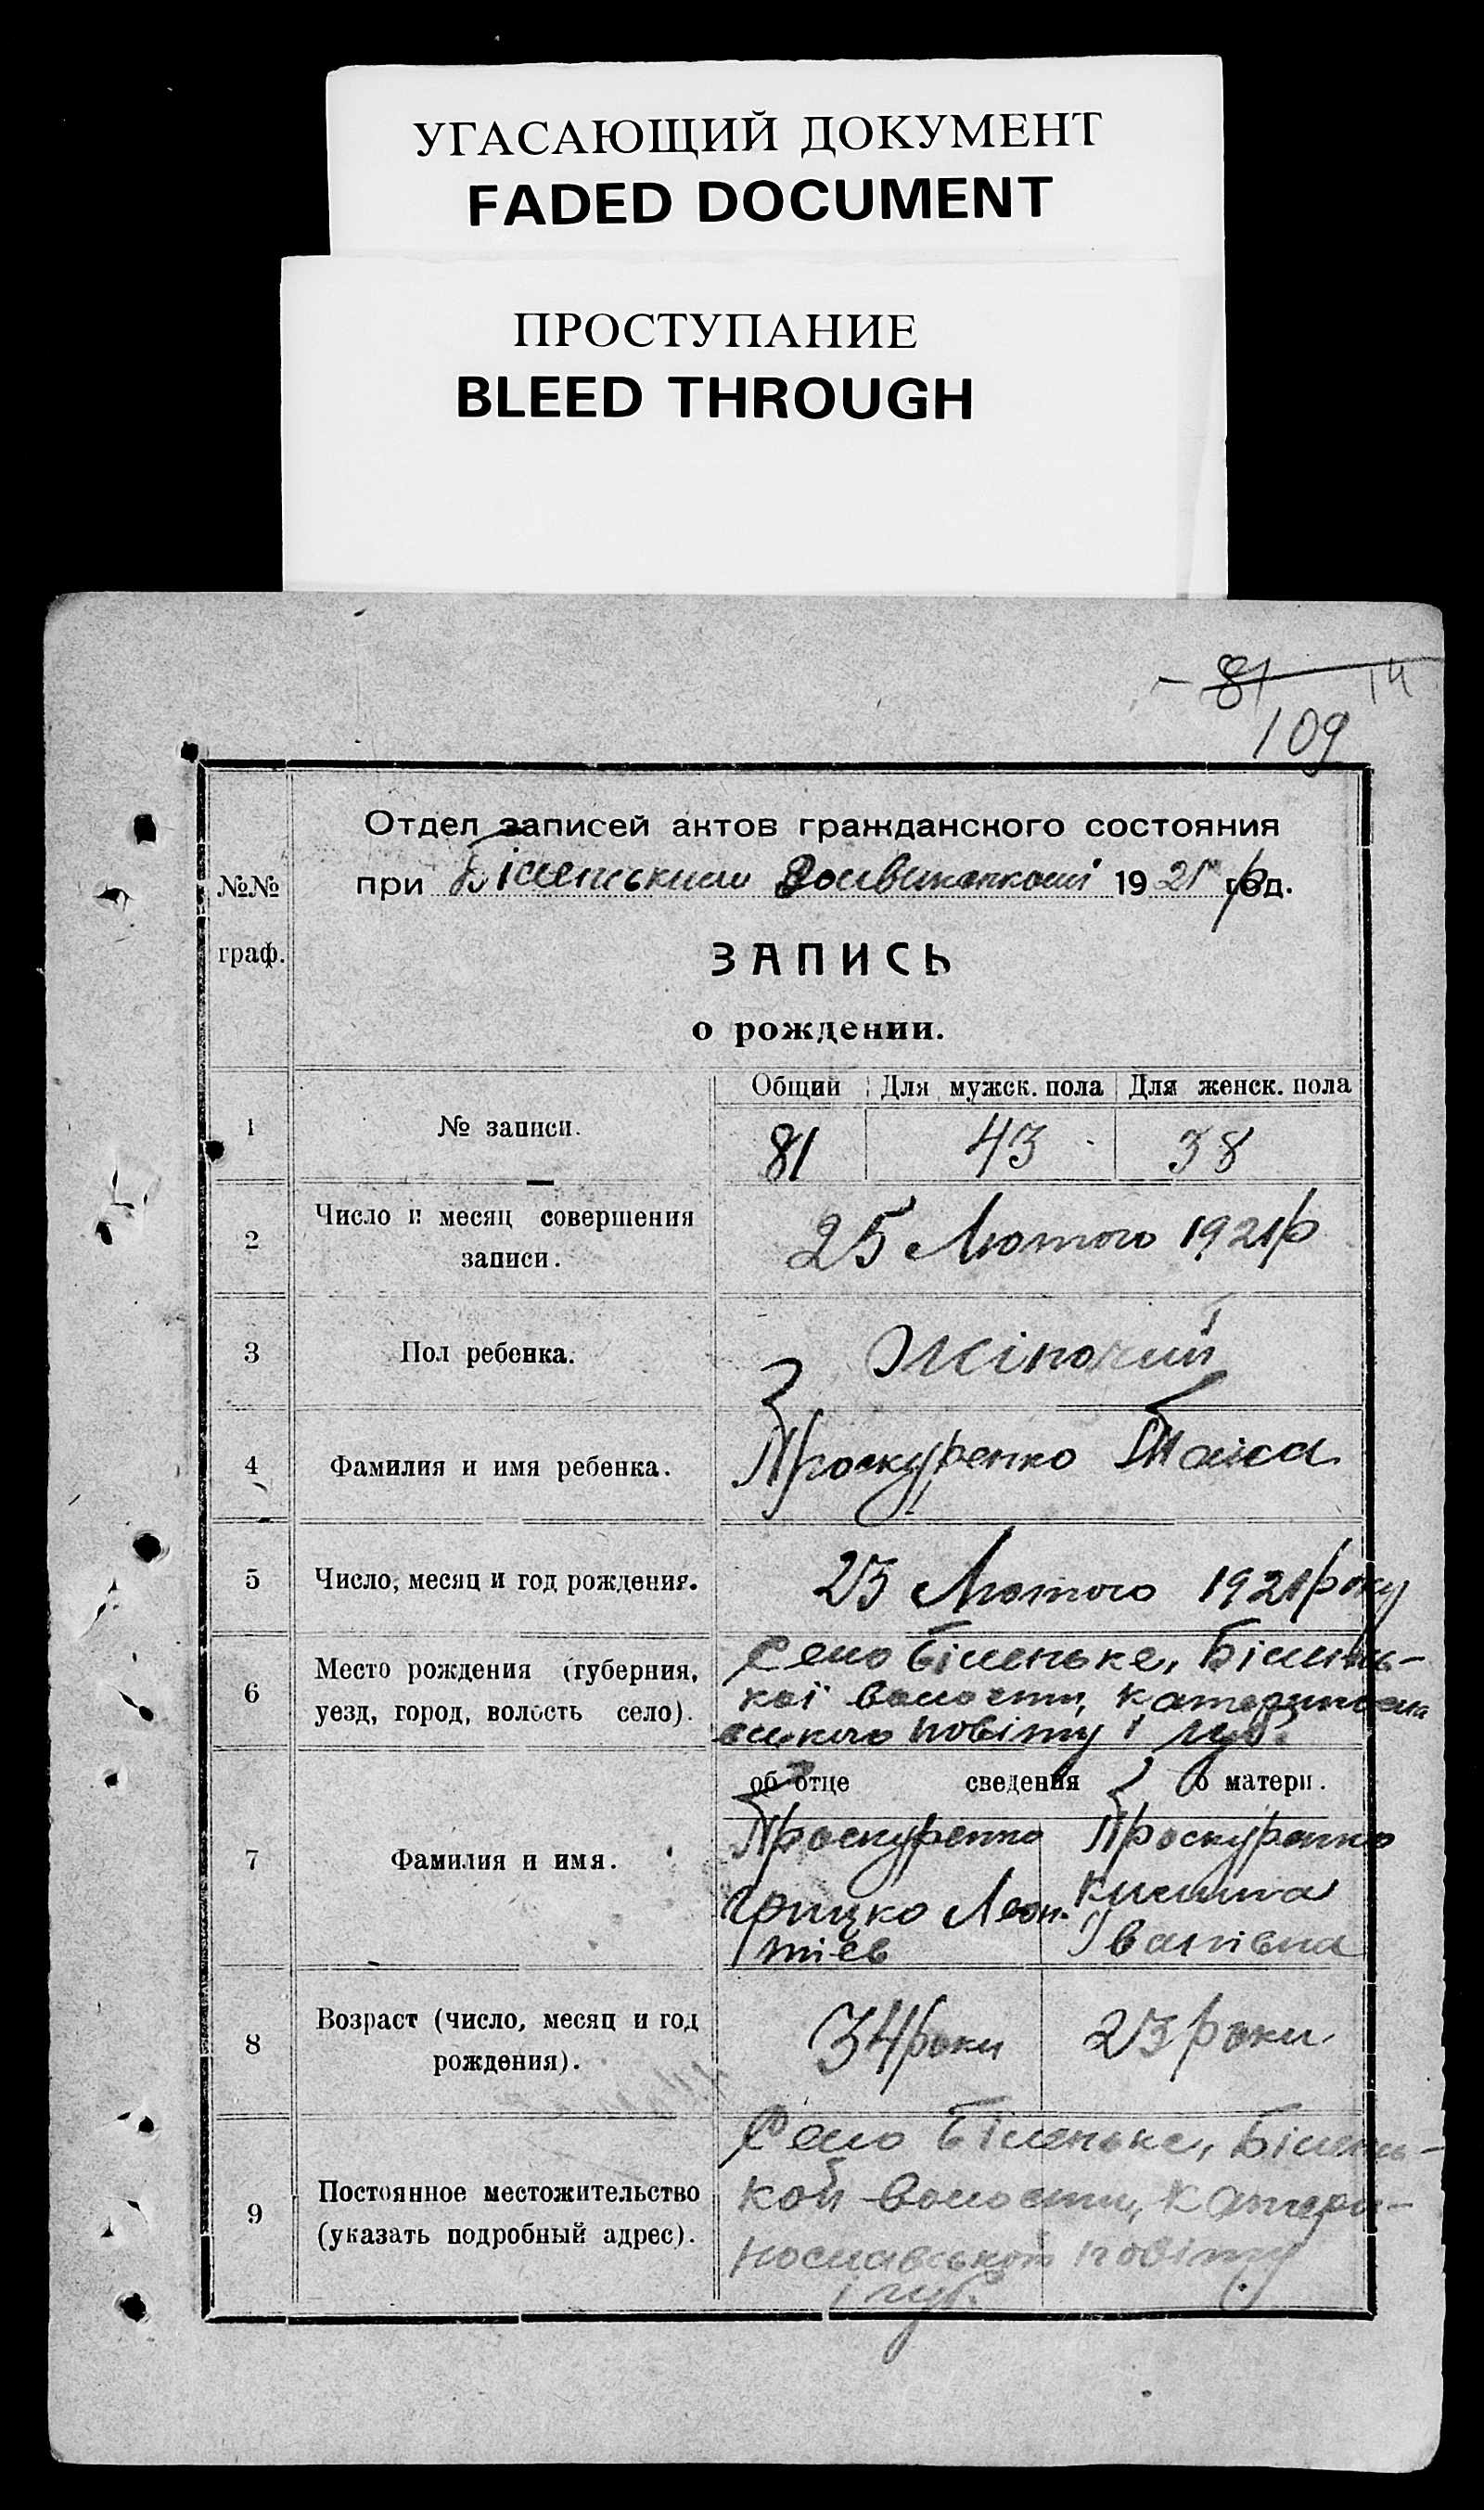 УГАСАЮЩИЙ ДОКУМЕНТ
FADED DOCUMENT
ПРОСТУПАНИЕ
BLEED THROUGH
81 14
109
№№ граф.
Отдел записей актов гражданского состояния
при Біленським Волвиконкомі 1921 р год.
ЗАПИСЬ
о рождении.
Общий Для мужск. пола Для женск. пола
1 № записи. 81 43 38
2 Число и месяц совершения записи. 25 Лютого 1921 р
3 Пол ребенка. Жіночий
4 Фамилия и имя ребенка. Проскуренко Таіса
5 Число, месяц и год рождения. 23 Лютого 1921 року
6 Место рождения (губерния, уезд, город, волость село).
Село Біленьке, Білень-
кої волости, Катериносла
вського повіту і губ.
об отце сведения о матери.
7 Фамилия и имя.
Проскуренко Проскуренко
Грицко Леон- Килина
тіев Іванівна
8 Возраст (число, месяц и год рождения). 34 роки 23 роки
9 Постоянное местожительство (указать подробный адрес).
Село Біленьке, Білень-
кой волости, Катери-
нославської повіту
і губ.